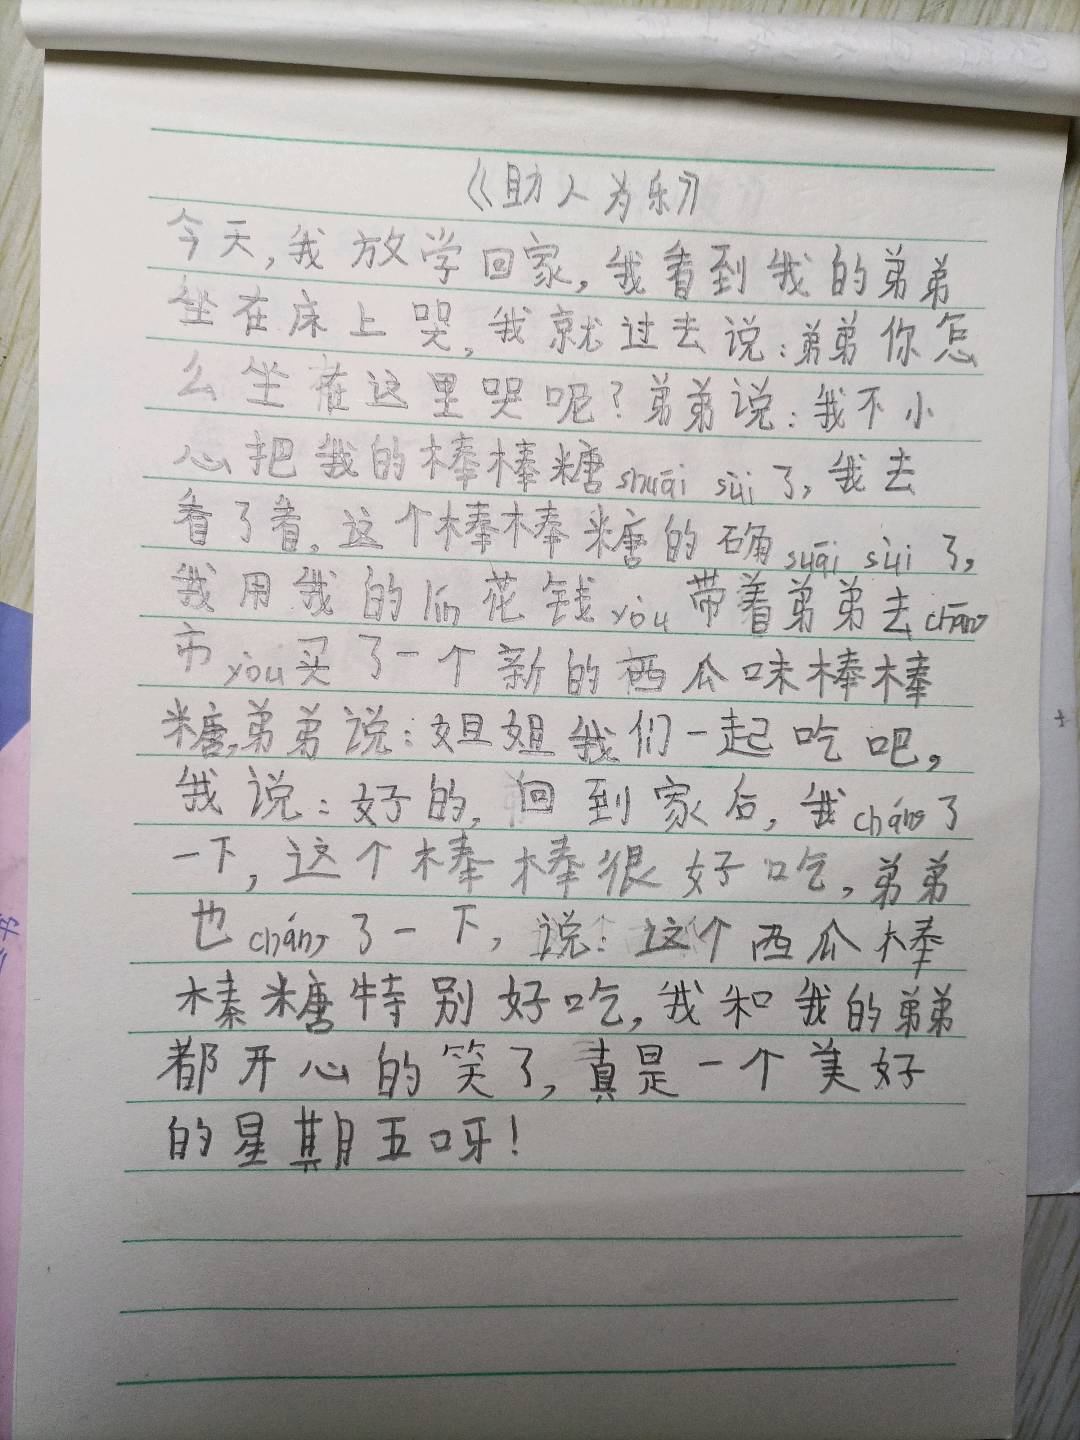 《助人为乐》
今天,我放学回家,我看到我的弟弟
坐在床上哭,我就过去说:弟弟你怎
么坐在这里哭呢?弟弟说:我不小
心把我的棒棒糖shuāi sùi了,我去
看了看,这个棒棒糖的确suāi sùi了,
我用我的līn花钱yòu带着弟弟去chāo
市yòu买了一个新的西瓜味棒棒
糖,弟弟说:姐姐我们一起吃吧,
我说:好的,回到家后,我cháng了
一下,这个棒棒很好吃,弟弟
也cháng了一下,说:这个西瓜棒
棒糖特别好吃,我和我的弟弟
都开心的笑了,真是一个美好
的星期五呀!